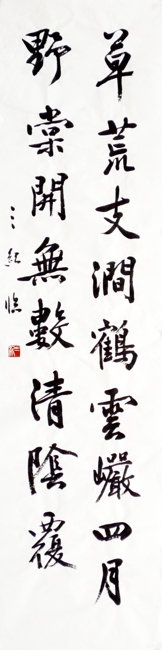 草荒支澗鶴雲巖四月
野棠開無數清陰覆
三紅臨